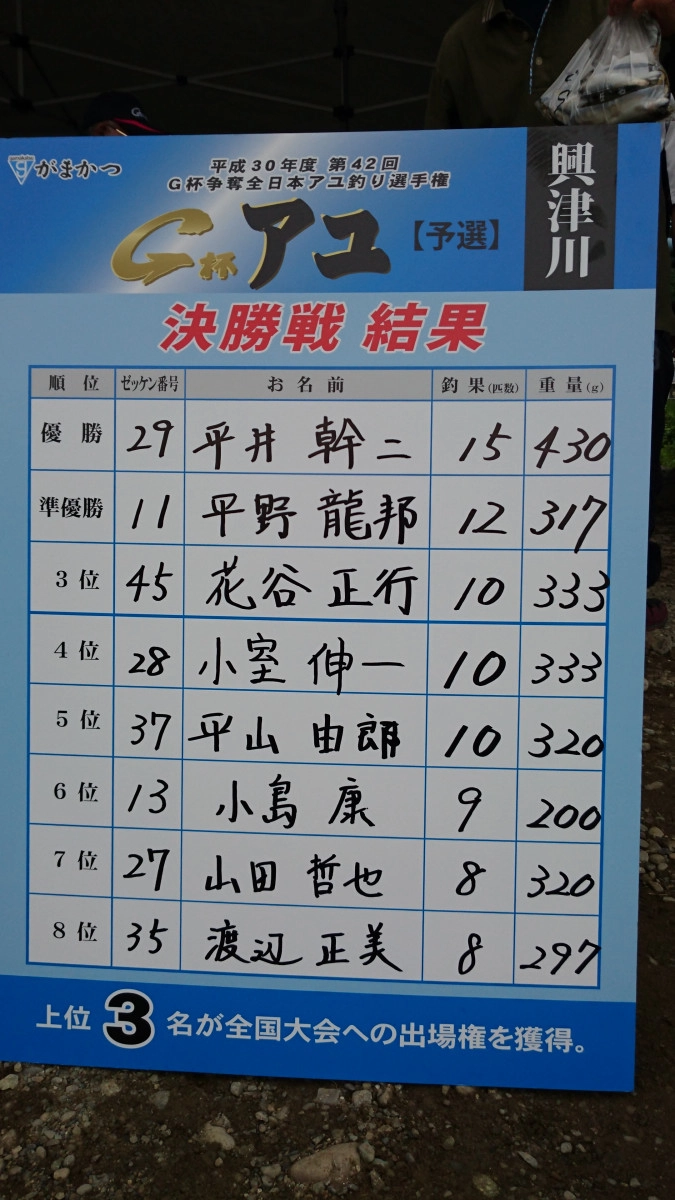 がまかつ
平成30年度 第42回
G杯争奪全日本アユ釣り選手権
G杯アユ【予選】
興津川
決勝戦 結果
順位 ゼッケン番号 お名前 釣果(匹数) 重量(g)
優勝 29 平井 幹二 15 430
準優勝 11 平野 龍邦 12 317
3位 45 花谷 正行 10 333
4位 28 小室 伸一 10 333
5位 37 平山 由朗 10 320
6位 13 小島 康 9 200
7位 27 山田 哲也 8 320
8位 35 渡辺 正美 8 297
上位3名が全国大会への出場権を獲得。